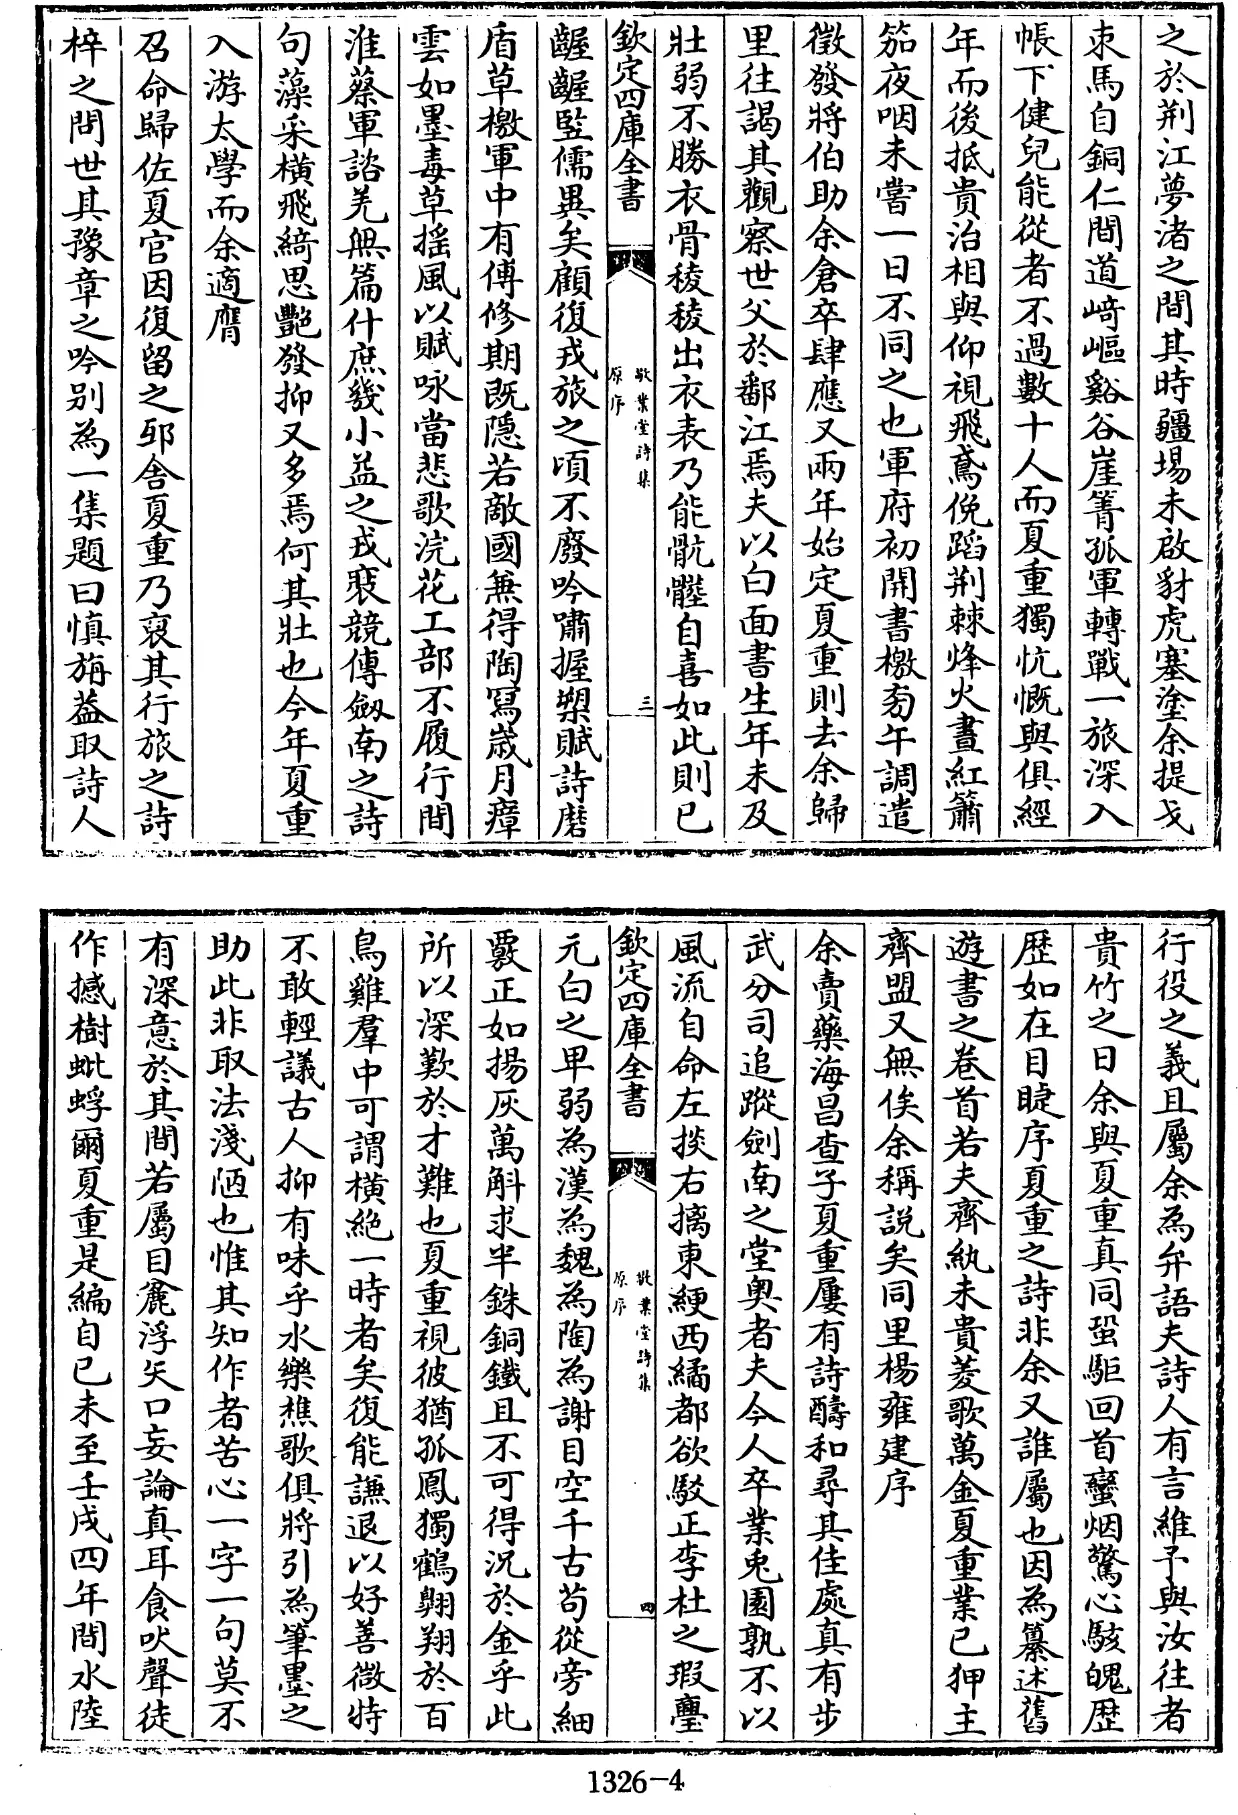 之於荆江夢渚之間其時疆場未啟豺虎塞塗余提戈
束馬自銅仁間道崎嶇谿谷崖箐孤軍轉戰一旅深入
帳下健兒能從者不過數十人而夏重獨忼慨與俱經
年而後抵貴治相與仰視飛鳶俛蹈荆棘烽火晝紅簫
笳夜咽未嘗一日不同之也軍府初開書檄旁午調遣
徵發將伯助余倉卒肆應又兩年始定夏重則去余歸
里往謁其觀察世父於鄱江焉夫以白面書生年未及
壯弱不勝衣骨稜稜出衣表乃能骯髒自喜如此則已
欽定四庫全書
敬業堂詩集
原序
三
齷齷豎儒異矣顧復戎旅之頃不廢吟嘯握槊賦詩磨
盾草檄軍中有傅修期既隱若敵國無得陶寫歲月瘴
雲如墨毒草揺風以賦咏當悲歌浣花工部不履行間
淮蔡軍諮羌無篇什庶幾小益之戎裝競傳劔南之詩
句藻采橫飛綺思艷發抑又多焉何其壯也今年夏重
入游太學而余適膺
召命歸佐夏官因復留之邸舍夏重乃裒其行旅之詩
梓之問世其豫章之吟别為一集題曰慎旃葢取詩人
行役之義且屬余為弁語夫詩人有言維予與汝往者
貴竹之日余與夏重真同蛩駏回首蠻烟驚心駭魄歴
歴如在目睫序夏重之詩非余又誰屬也因為纂述舊
遊書之卷首若夫齊紈未貴菱歌萬金夏重業已狎主
齊盟又無俟余稱説矣同里楊雍建序
余賣藥海昌查子夏重屢有詩醻和尋其佳處真有步
武分司追蹤劍南之堂奥者夫今人卒業兎園孰不以
風流自命左掞右摛東綆西繘都欲駁正李杜之瑕亹
欽定四庫全書
敬業堂詩集
原序
四
元白之卑弱為漢為魏為陶為謝目空千古苟從旁細
覈正如揚灰萬斛求半銖銅鐵且不可得況於金乎此
所以深歎於才難也夏重視彼猶孤鳳獨鶴翺翔於百
鳥雞羣中可謂橫絶一時者矣復能謙退以好善微特
不敢輕議古人抑有味乎水樂樵歌俱將引為筆墨之
助此非取法淺恓也惟其知作者苦心一字一句莫不
有深意於其間若屬目麄浮矢口妄論真耳食吠聲徒
作撼樹蚍蜉爾夏重是編自已未至壬戌四年間水陸
1326-4